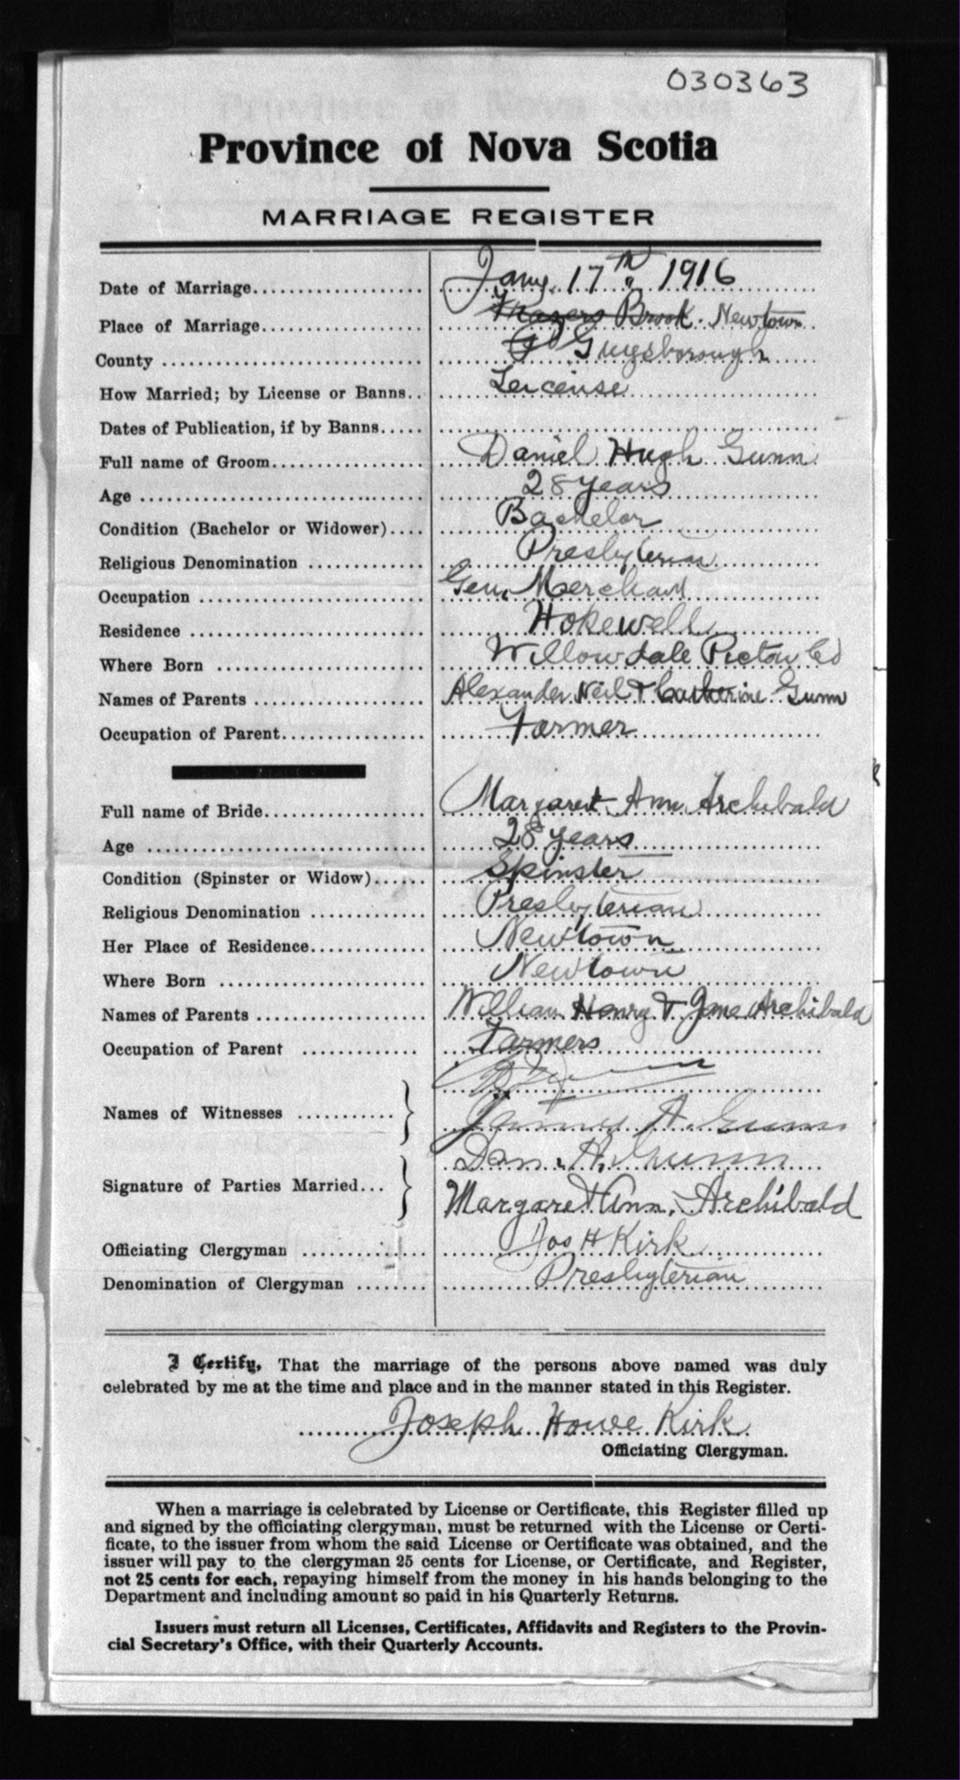 030363
Province of Nova Scotia
MARRIAGE REGISTER
Date of Marriage Jany. 17th 1916
Place of Marriage Brook. Newtown
County Guysborough
How Married; by License or Banns Lercense
Dates of Publication, if by Banns
Full name of Groom Daniel Hugh Gunn
Age 28 years
Condition (Bachelor or Widower) Bachelor
Religious Denomination Presbyterian
Occupation Gen. Merchant
Residence Hopewell
Where Born Willowdale Pictou Co
Names of Parents Alexander Neil & Catherine Gunn
Occupation of Parent Farmer
Full name of Bride Margaret Ann Archibald
Age 28 years
Condition (Spinster or Widow) Spinster
Religious Denomination Presbyterian
Her Place of Residence Newtown
Where Born Newtown
Names of Parents William Henry & Jane Archibald
Occupation of Parent Farmers
Names of Witnesses
A. Gunn
Dan. H. Gunn
Signature of Parties Married
Margaret Ann. Archibald
Officiating Clergyman Jos H Kirk
Denomination of Clergyman Presbyterian
I Certify, That the marriage of the persons above named was duly
celebrated by me at the time and place and in the manner stated in this Register.
Joseph Howe Kirk
Officiating Clergyman.
When a marriage is celebrated by License or Certificate, this Register filled up
and signed by the officiating clergyman, must be returned with the License or Certi-
ficate, to the issuer from whom the said License or Certificate was obtained, and the
issuer will pay to the clergyman 25 cents for License, or Certificate, and Register,
not 25 cents for each, repaying himself from the money in his hands belonging to the
Department and including amount so paid in his Quarterly Returns.
Issuers must return all Licenses, Certificates, Affidavits and Registers to the Provin-
cial Secretary's Office, with their Quarterly Accounts.